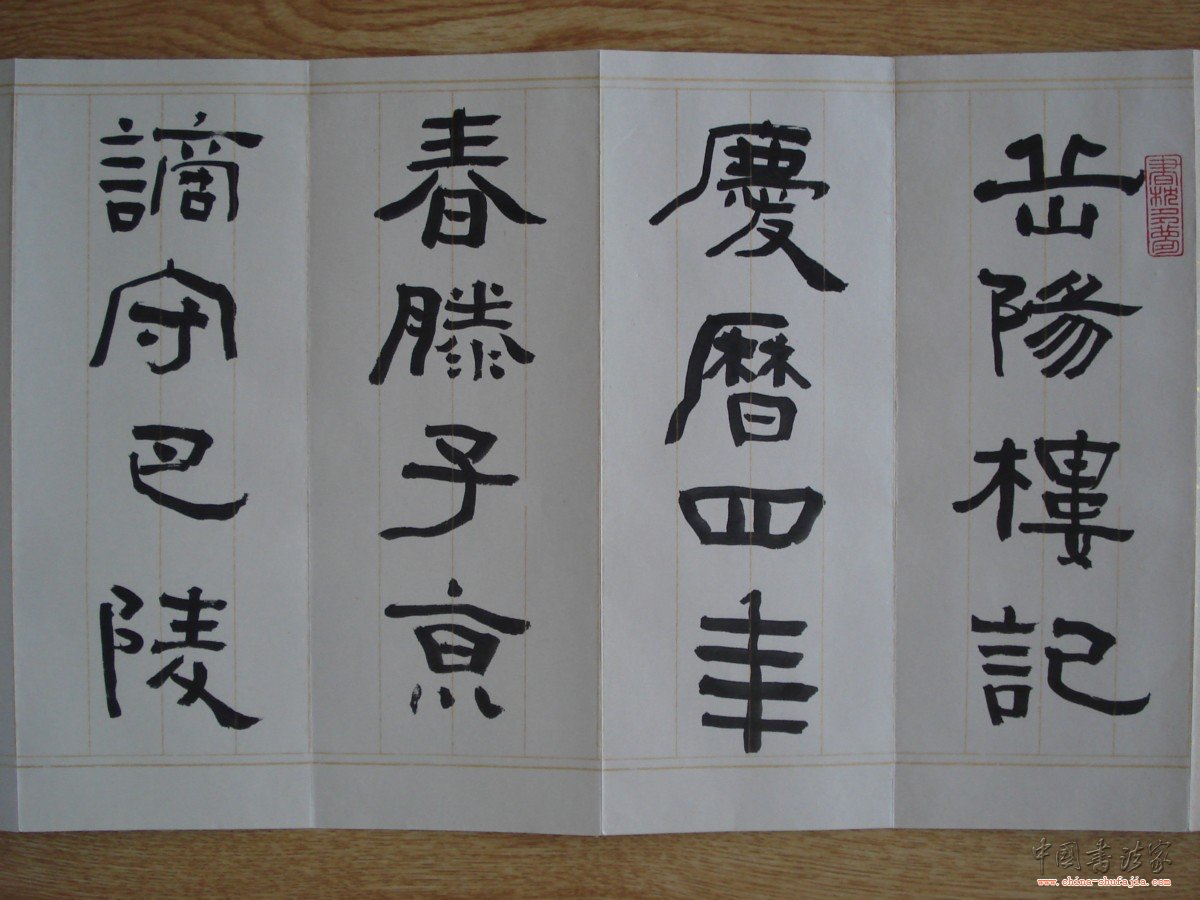 岳陽樓記
慶曆四年
春滕子京
謫守巴陵
中国书法家
www.china-shufajia.com